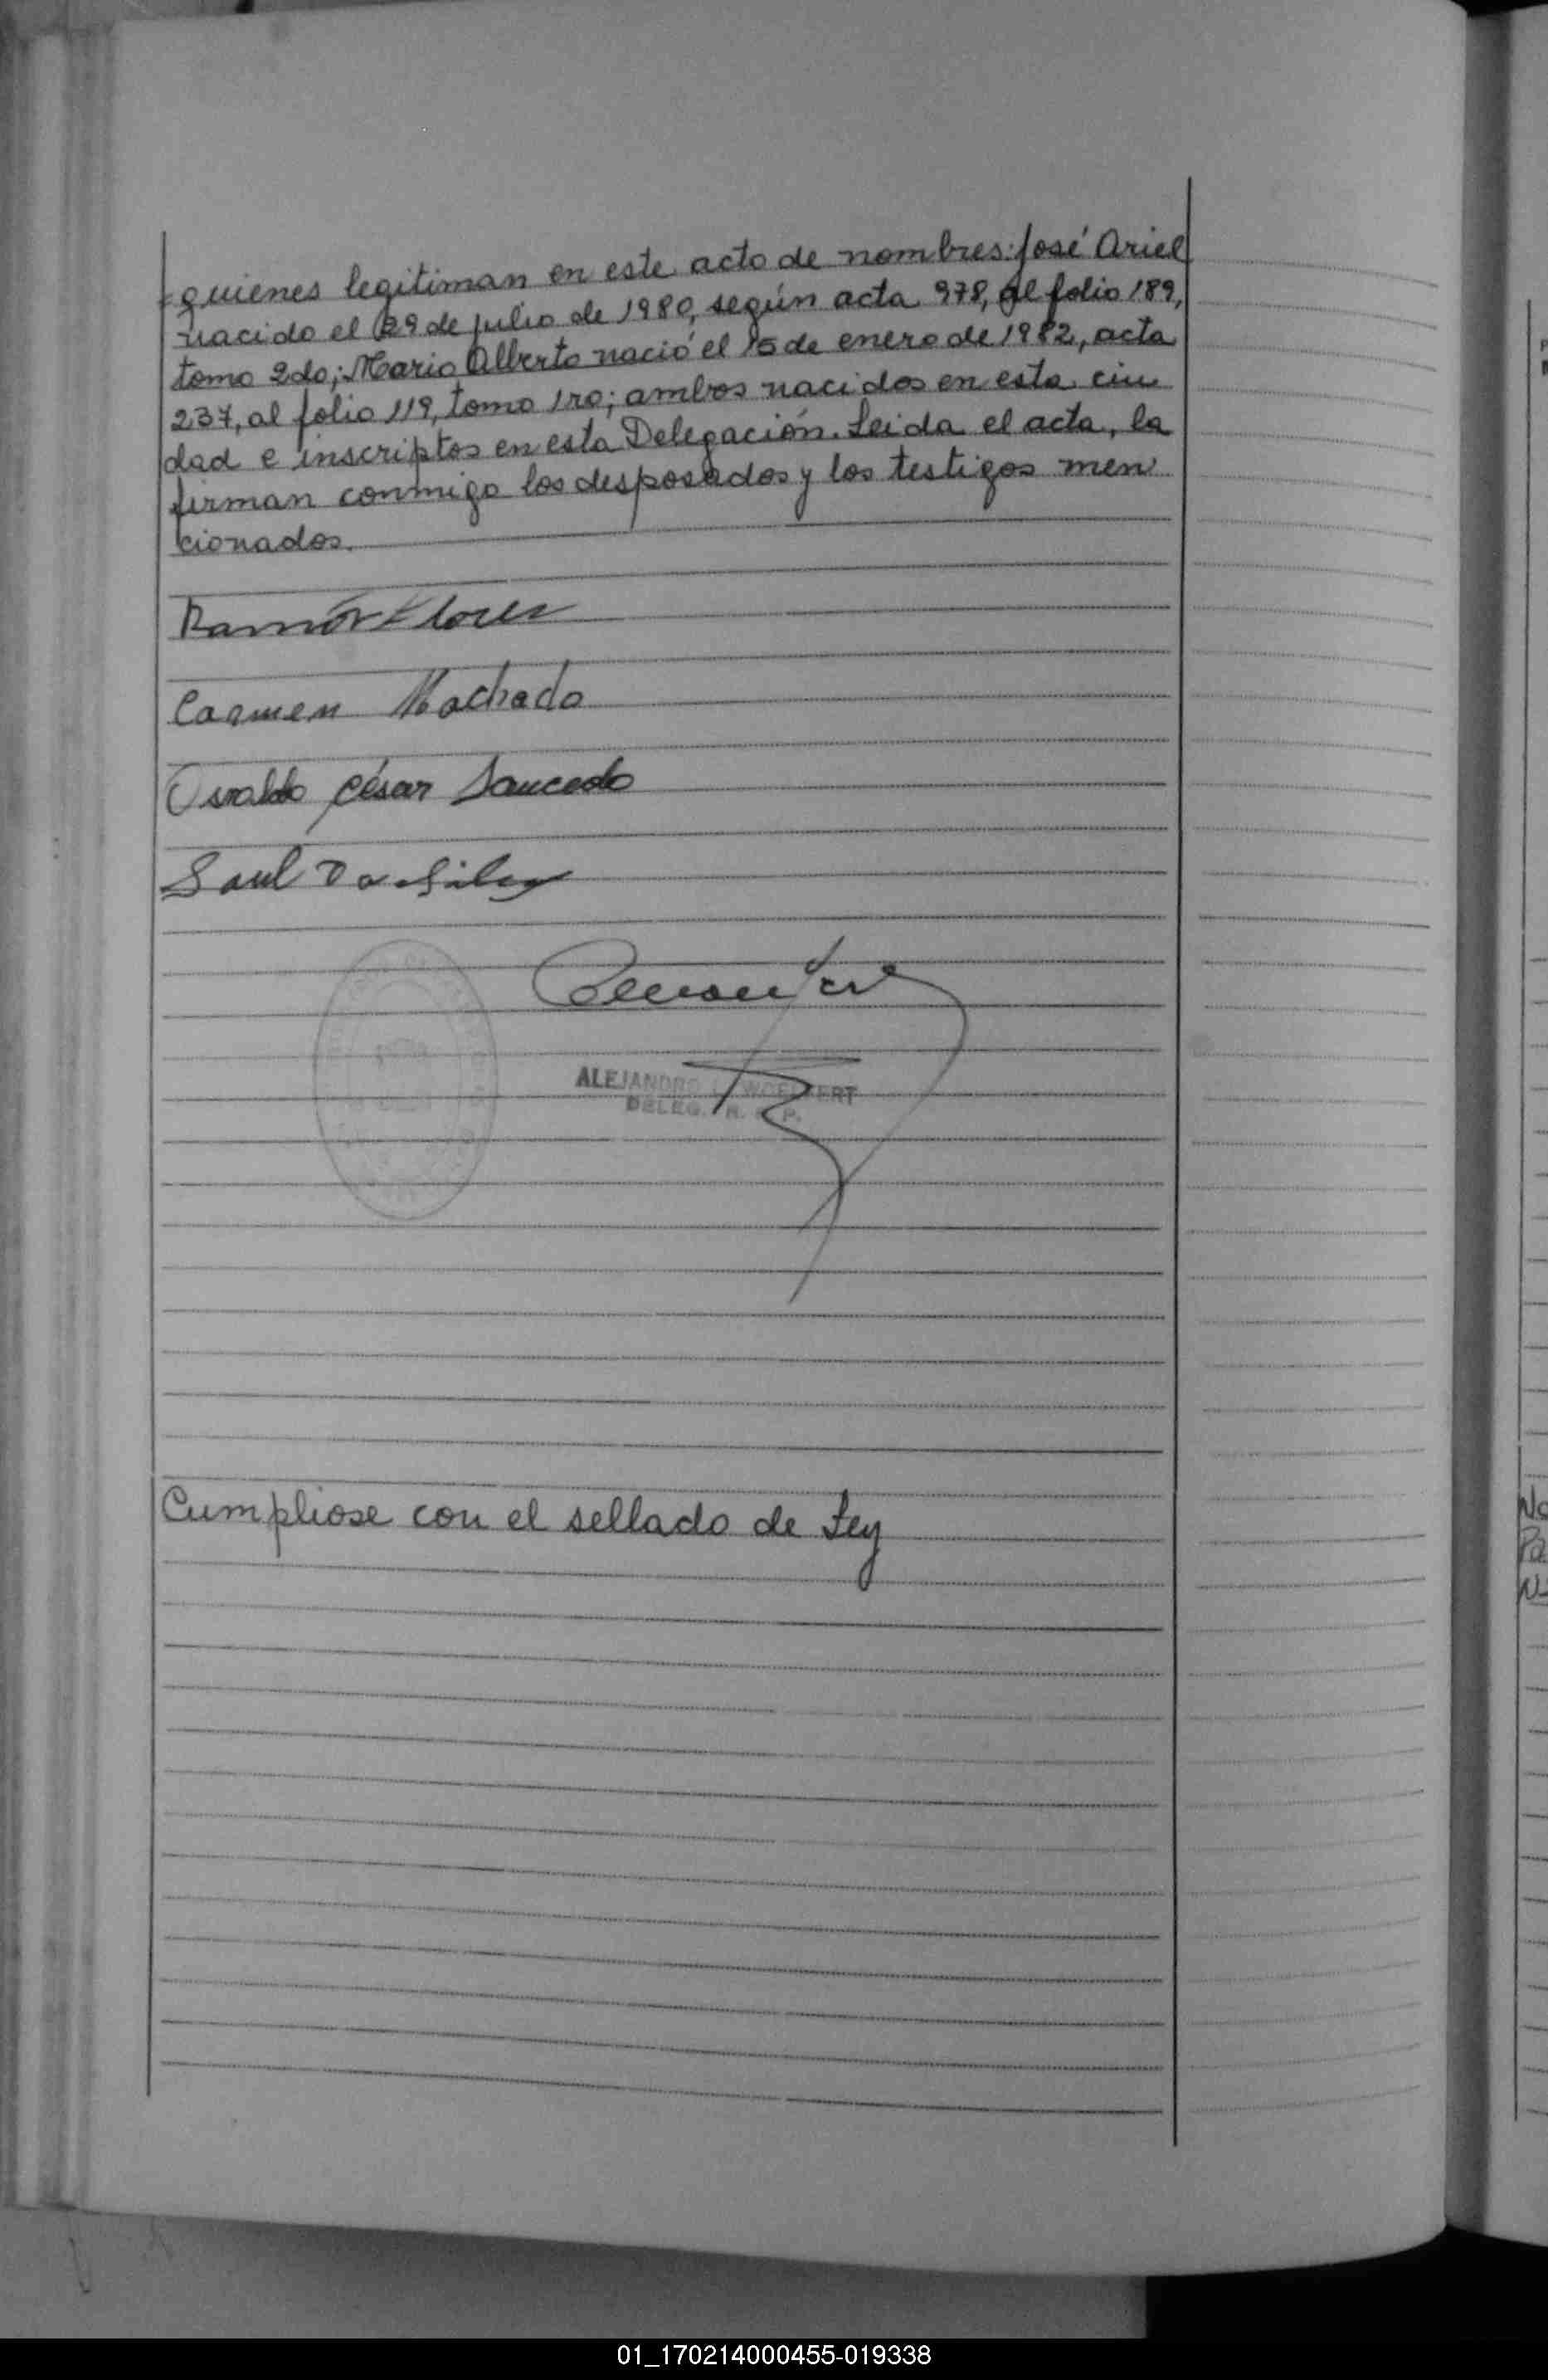 quienes legitiman en este acto de nombres: José Ariel
nacido el 29 de julio de 1980, según acta 978, al folio 189,
tomo 2do; Mario Alberto nació el 15 de enero de 1982, acta
237, al folio 119, tomo 1ro; ambros nacidos en esta ciu
dad e inscriptos en esta Delegación. Leida el acta, la
firman conmigo los desposados y los testigos men
cionados.
Ramón Flores
Carmen Machado
Osvaldo César Saucedo
Saul Da Silva
ALEJANDRO
DELEG. R. P.
Cumpliose con el sellado de Ley
No
Pa
01_170214000455-019338